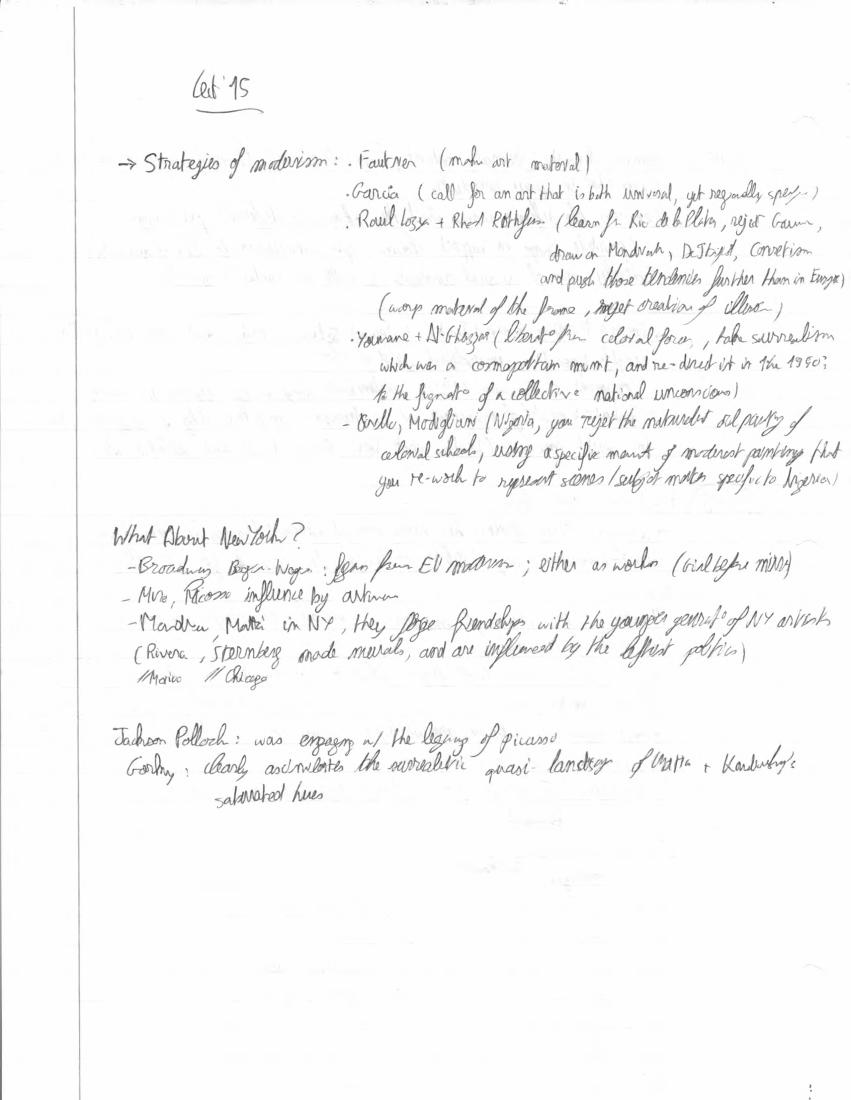 Lect 15
→ Strategies of modernism : . Fautrier (make art material)
. Garcia (call for an art that is both universal, yet regionally spe
. Raul Lozza + Rhod Rothfuss (learn fr Rio de la Plata, reject
draw on Mondrian, De Stijl, 
and push those tendencies further than in Europe)
( material of the frame, reject creation of illusion)
. Younane + Al-Ghazzar ( from colonial forces, take surrealism
which was a cosmopolitan mvmt, and re-direct it in the 1950s
to the of a collective national unconscious)
- , Modigliani ( , you reject the oil painting of
colonial schools, using a specific of modernist paintings that
you re-work to represent scenes/subject matter specific to Nigeria)
What About New York?
- Broadway Boogie-Woogie : from EU ; either as works (Girl before mirror)
- , Picasso influence by
- , Matta in NY, they forge friendships with the younger generat° of NY artists
(Rivera, Sternberg made murals, and are influenced by the leftist politics)
//Mexico //Chicago
Jackson Pollock : was engaging w/ the legacy of picasso
Gorky : clearly assimilates the quasi-landscp of Matta + Kandinsky's
saturated hues